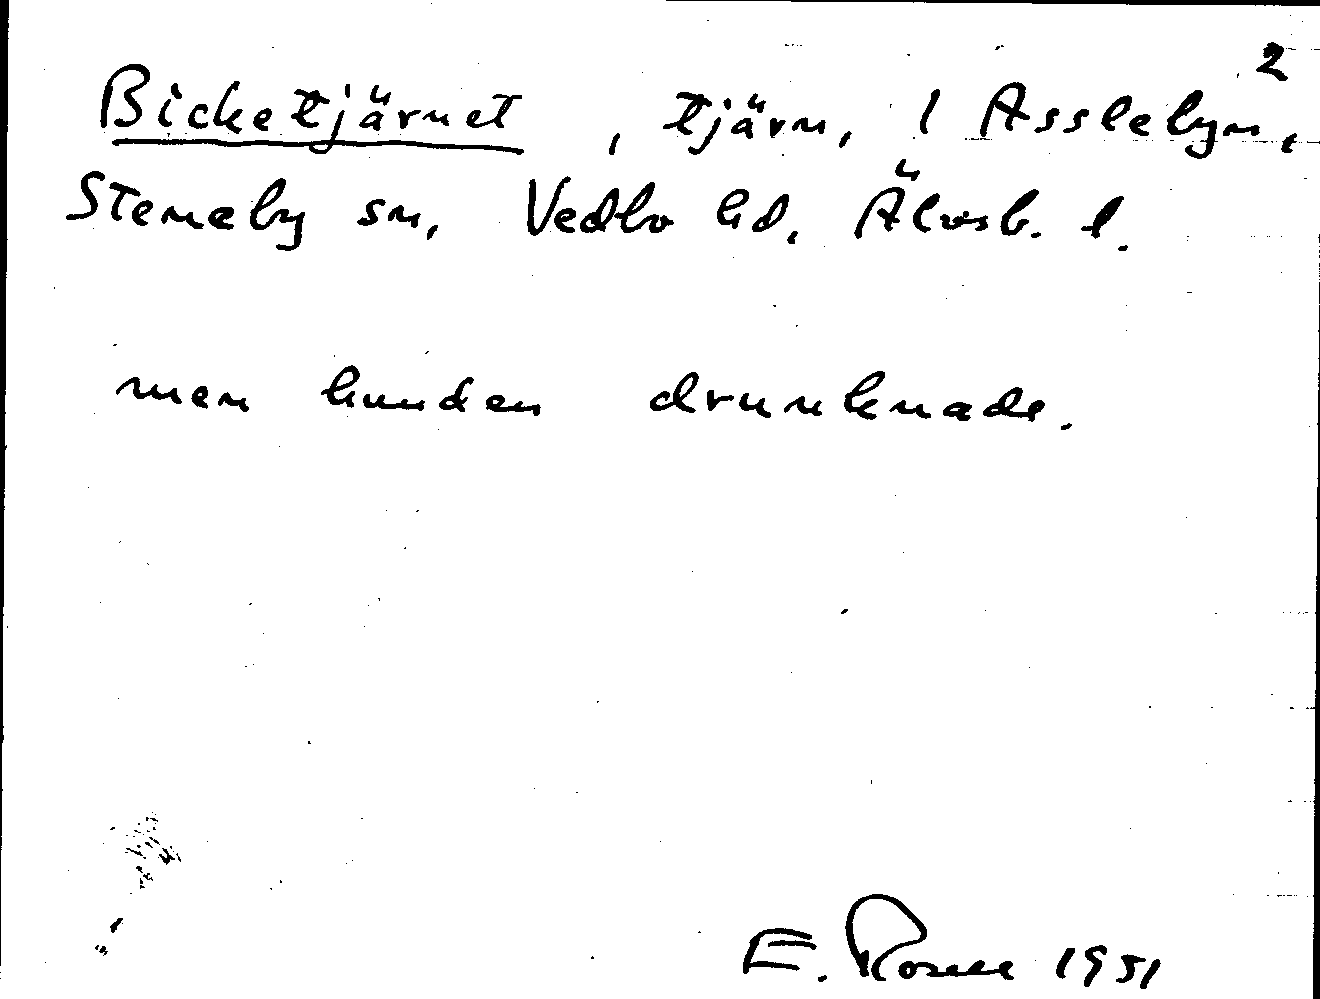 2
Bicketjärnet, tjärn, 1 Asslebyn,
Steneby sn, Vedbo hd, Älvsb. l.
men hunden drunknade.
E. Rosell 1951